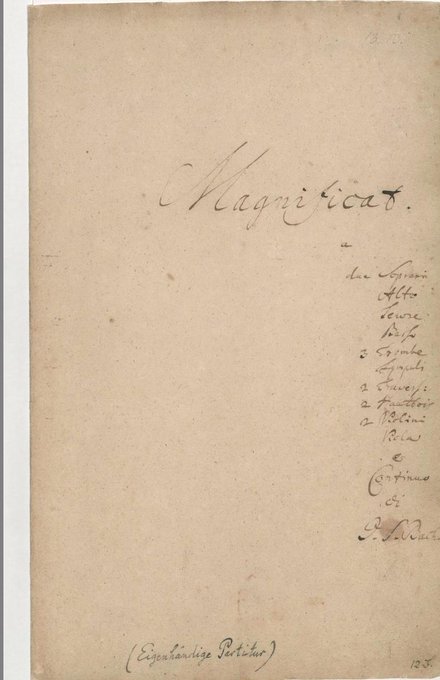 Magnificat.
a
due Soprani
Alto
Tenore
Basso
3 Trombe
Tympali
2 Travers:
2 Hautbois
2 Violini
Viola
e
Continuo
di
J. S. Bach.
(Eigenhändige Partitur)